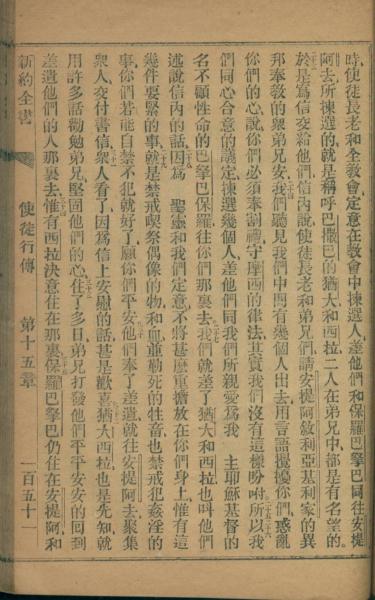 時、使徒長老和全教會定意在教會中揀選人、差他們和保羅巴拏巴同往安提
阿去、所揀選的就是稱呼巴撒巴的猶大和西拉、二人在弟兄中、都是有名望的、
於是寫信交給他們、信內說、使徒長老和弟兄們、請安提阿敘利亞基利家的異
邦奉教的衆弟兄安、我們聽見我們中間有幾個人出去、用言語攪擾你們、惑亂
你們的心、說、你們必須奉割禮、守摩西的律法、其實我們沒有這樣吩咐、所以我
們同心合意的議定、揀選幾個人、差他們同我們所親愛、爲我 主耶穌基督的
名不顧性命的巴拏巴保羅往你們那裏去、我們就差了猶大和西拉、也叫他們
述說信內的話、因爲 聖靈和我們定意、不將甚麼重擔放在你們身上、惟有這
幾件要緊的事、就是禁戒喫祭偶像的物、和血、並勒死的牲畜、也禁戒犯姦淫的
事、你們若能自禁不犯就好了、願你們平安、他們奉了差遣、就往安提阿去、聚集
衆人、交付書信、衆人看了、因爲信上安慰的話、甚是歡喜、猶大西拉也是先知、就
用許多話勸勉弟兄、堅固他們的心、住了多日、弟兄打發他們平平安安的回到
差遣他們的人那裏去、惟有西拉決意住在那裏、保羅巴拏巴仍住在安提阿、和
新約全書 使徒行傳 第十五章 一百五十一